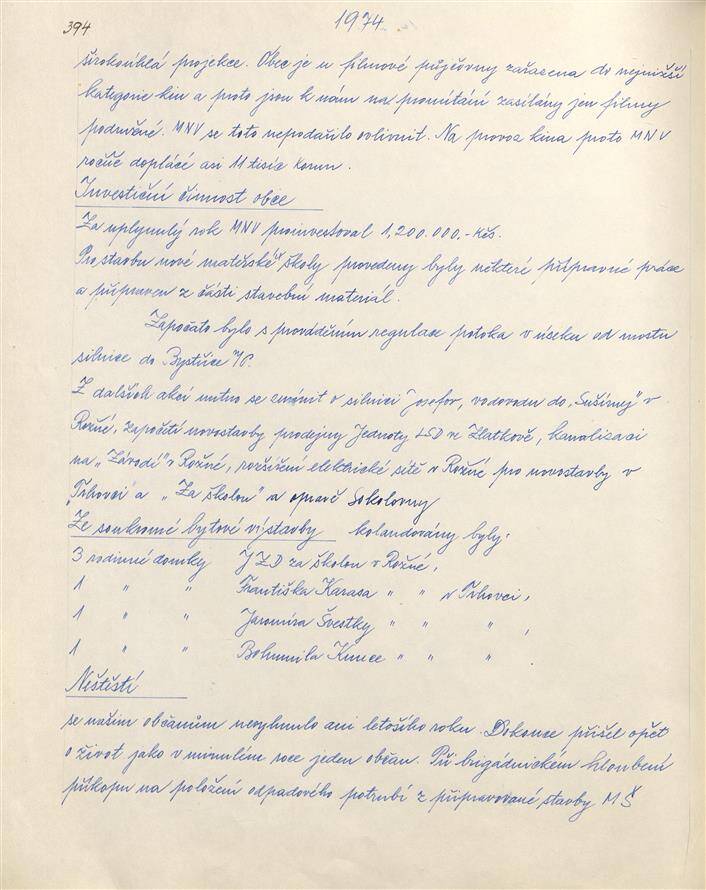 394
1974
širokoúhlá projekce. Obec je u filmové půjčovny zařazena do nejnižší
kategorie kin a proto jsou k nám na promítání zasílány jen filmy
podružné. MNV se toto nepodařilo ovlivnit. Na provoz kina proto MNV
ročně doplácí asi 11 tisíc korun.
Investiční činnost obce
Za uplynulý rok MNV proinvestoval 1,200.000,- Kčs.
Pro stavbu nové mateřské školy provedeny byly některé přípravné práce
a připraven z části stavební materiál.
Započato bylo s prováděním regulace potoka v úseku od mostu
silnice do Bystřice n/P.
Z dalších akcí nutno se zmínit o silnici Josefov, vodovodu do „Sušírny" v
Rožné, započetí novostavby prodejny Jednoty LSD ve Zlatkově, kanalizaci
na „Závodí" v Rožné, rozšíření elektrické sítě v Rožné pro novostavby v
„Trhovci a „Za školou" a opravě Sokolovny
Ze soukromé bytové výstavby kolaudovány byly:
3 rodinné domky JZD za školou v Rožné,
1 " " Františka Karasa " " v Trhovci,
1 " " Jaromíra Švestky " " " ,
1 " " Bohumila Kunce " " " .
Neštěstí
se našim občanům nevyhnulo ani letošího roku. Dokonce přišel opět
o život jako v minulém roce jeden občan. Při brigádnickém hloubení
příkopu na položení odpadového potrubí z připravované stavby MŠ